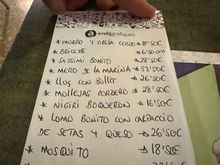 * MORRO Y OREJA CERDO → 18'50€
* BRIOCHE → 6'50€
* SASSIMI BONITO → 28'50€
* MERO DE LA MARIÑA → 32'50€
* LLUS CON SOFRIT → 26'50€
* MOLLEJAS CORDERO → 28'50€
* NIGIRI BOQUERON → 16'50€
* LOMO BONITO CON CARPACCIO
DE SETAS Y QUESO → 26'50€
* MOSQUITO → 18'50€